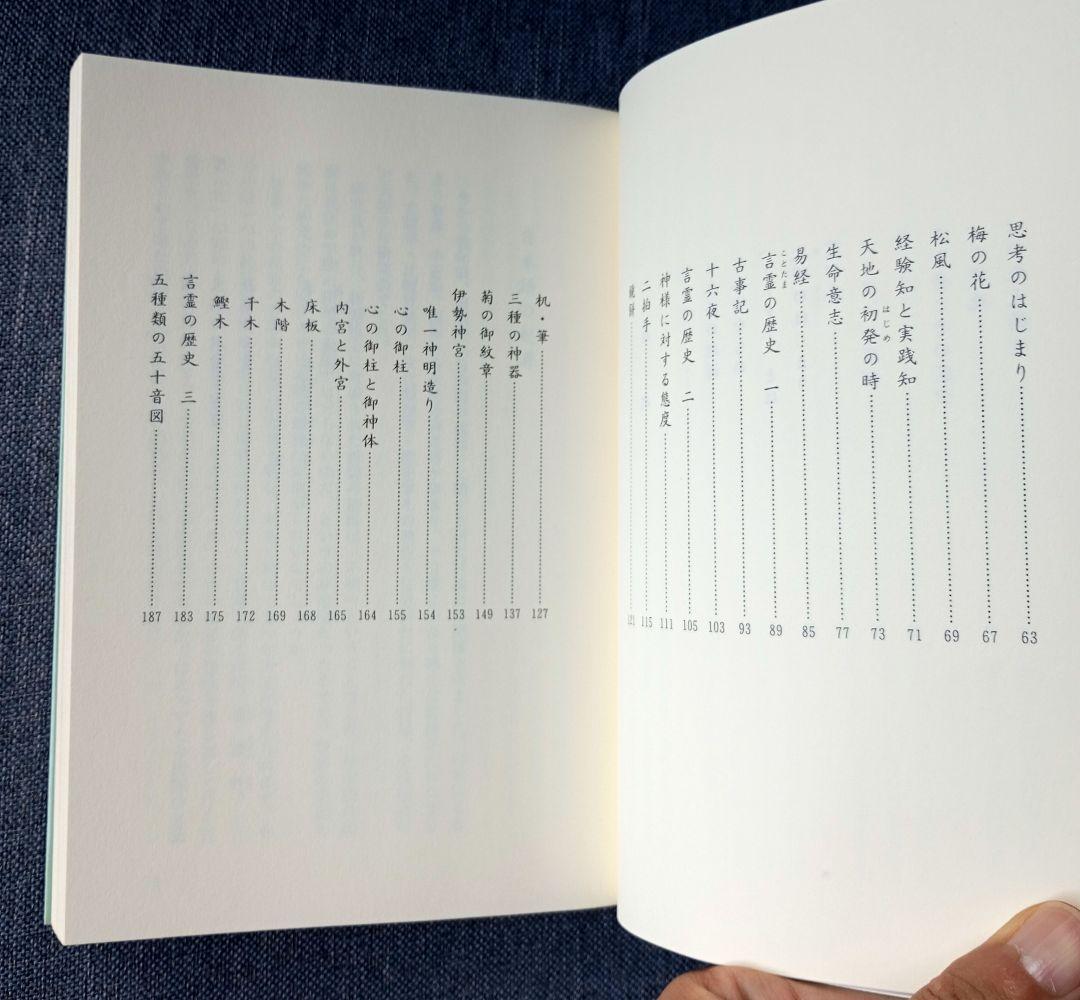 思考のはじまり……63
梅の花……67
松風……69
経験知と実践知……71
天地の初発の時……73
はじめ
生命意志……77
易経……85
言霊の歴史　一……89
ことたま
古事記……93
十六夜……103
言霊の歴史　二……105
神様に対する態度……111
二拍手……115
121
机・筆……127
三種の神器……137
菊の御紋章……149
伊勢神宮……153
唯一神明造り……154
心の御柱……155
心の御柱と御神体……164
内宮と外宮……165
床板……168
木階……169
千木……172
鰹木……175
言霊の歴史　三……183
五種類の五十音図……187